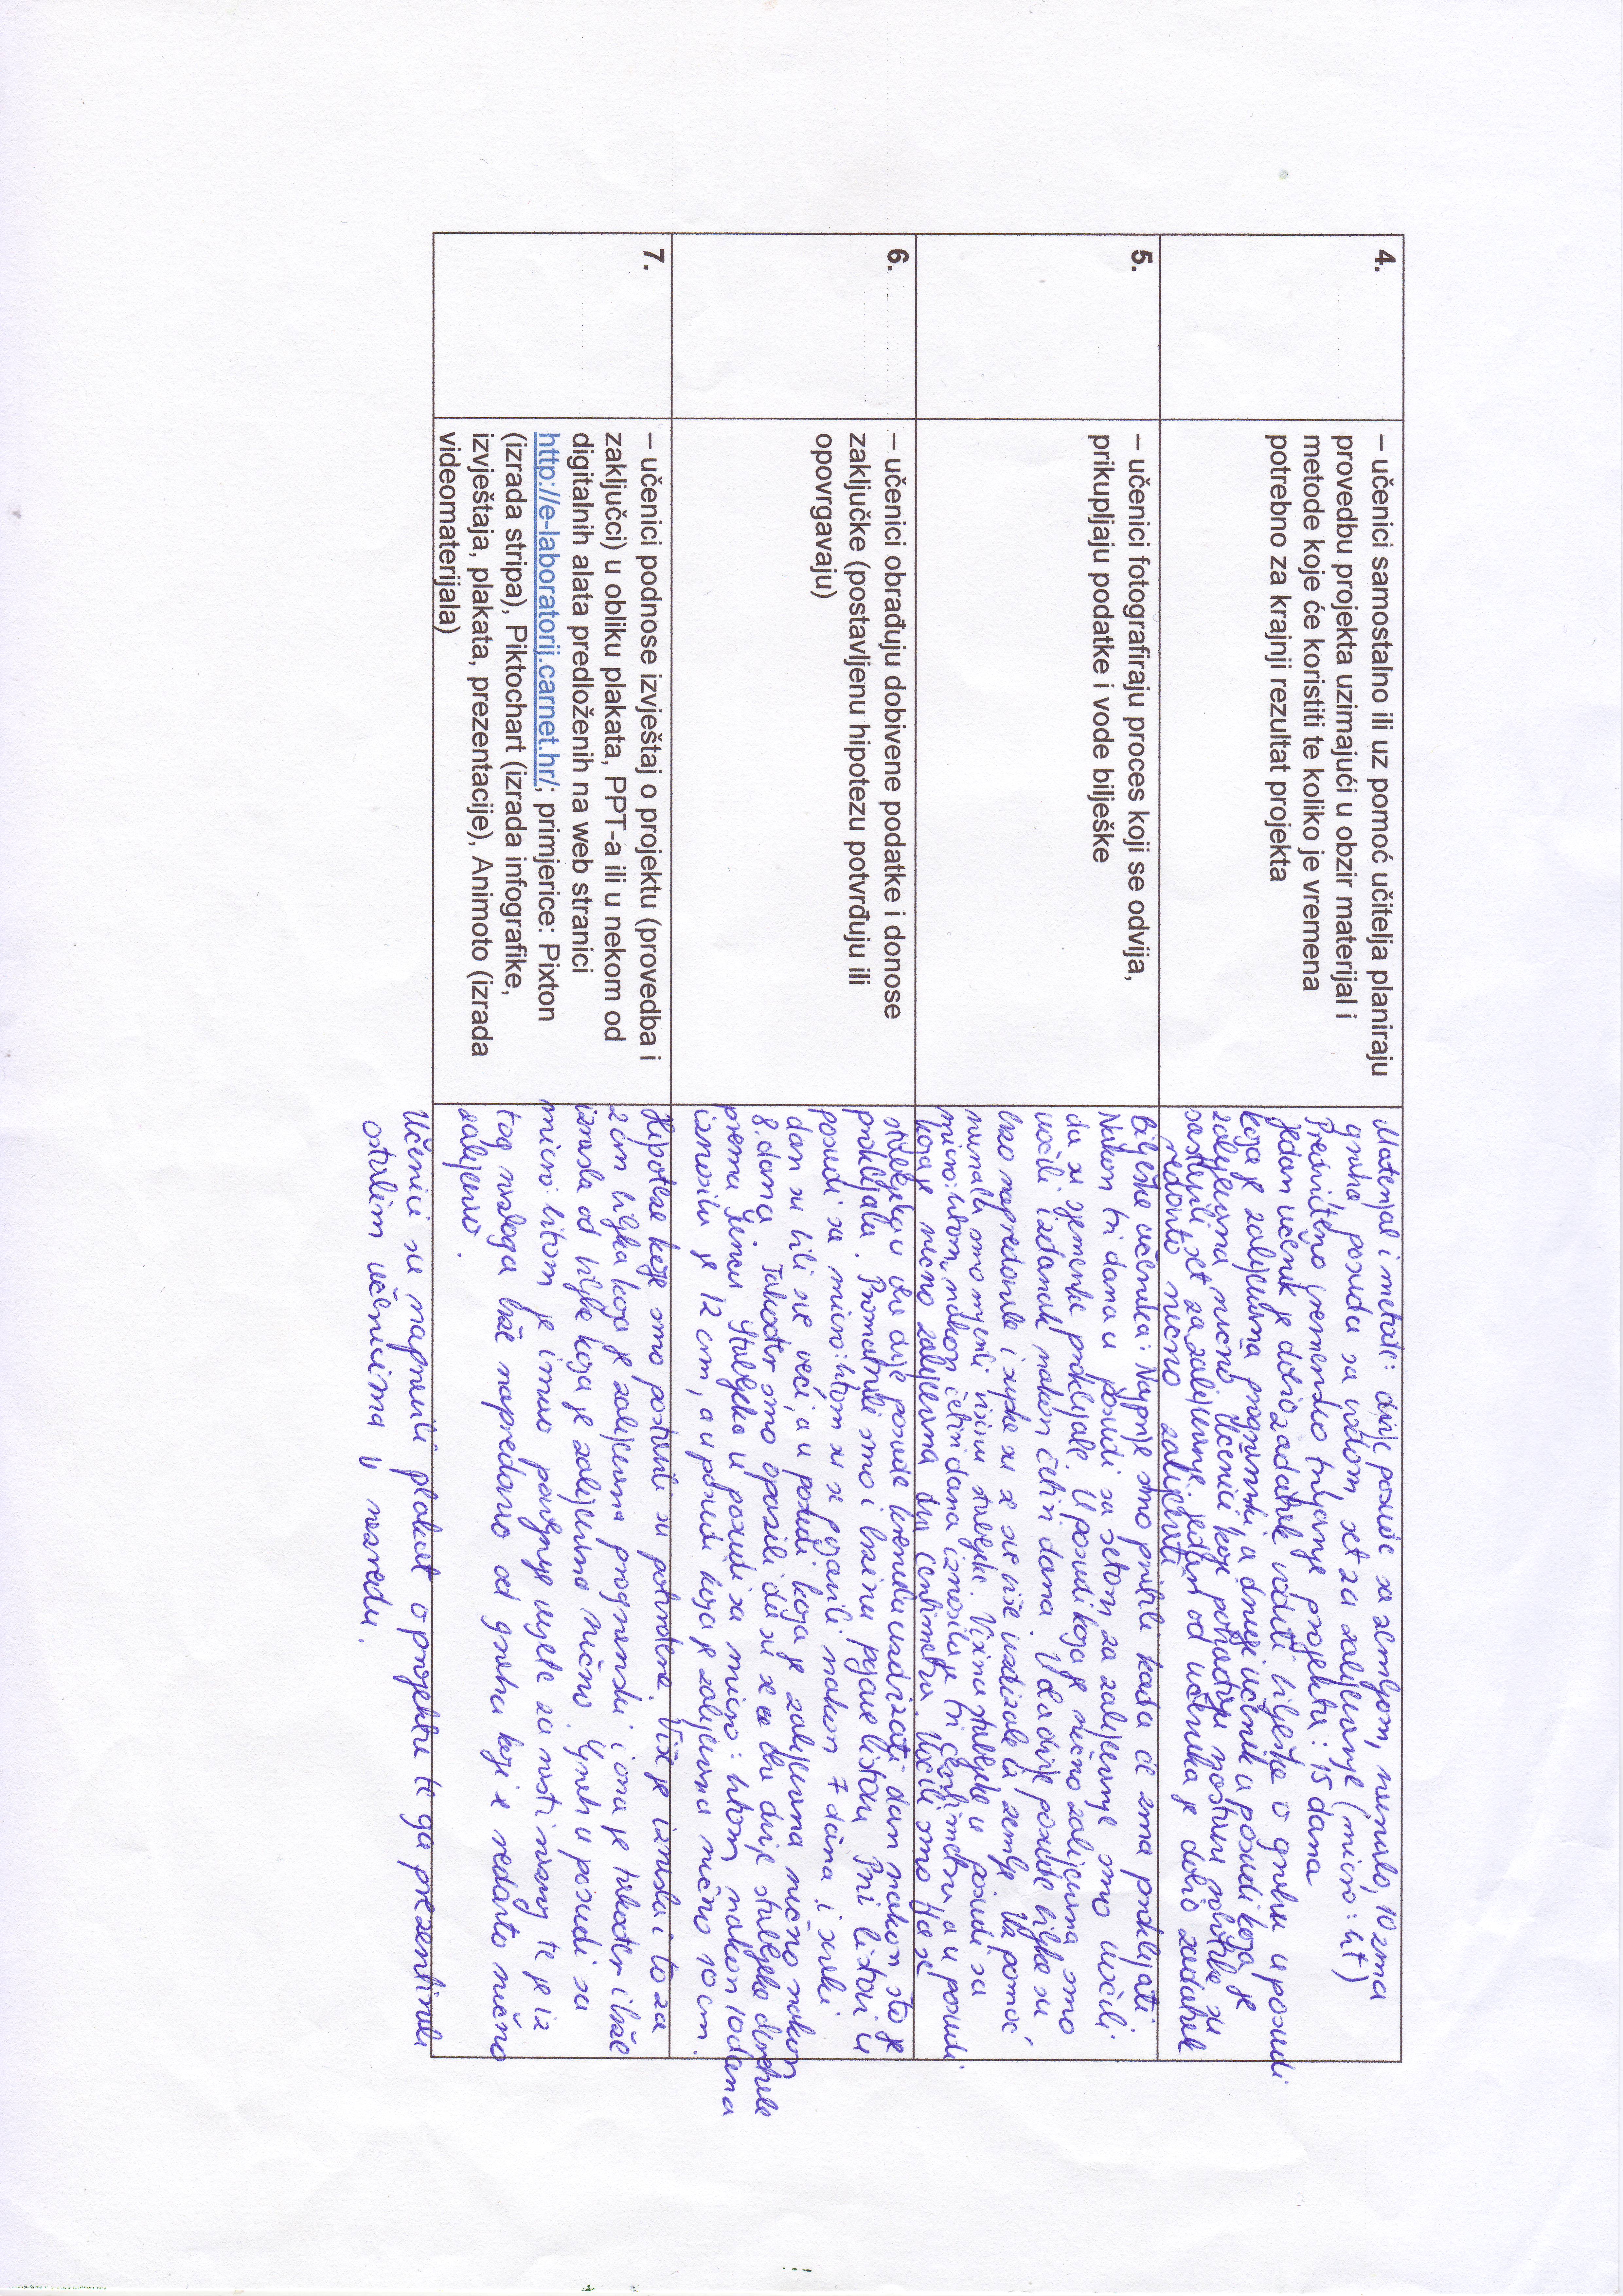 4.
– učenici samostalno ili uz pomoć učitelja planiraju
provedbu projekta uzimajući u obzir materijal i
metode koje će koristiti te koliko je vremena
potrebno za krajnji rezultat projekta
Materijal i metode: dvije posude sa zemljom, ravnalo, 10 zrna
graha, posuda sa vodom, set za zalijevanje (micro:bit)
Predviđeno vremensko trajanje projekta: 15 dana
Jedan učenik je dobio zadatak voditi bilješke o grahu u posudi
koja je zalijevana programski, a drugi učenik u posudi koja je
zalijevana ručno. Učenice koje pohađaju
sastavili set za zalijevanje. Jedan od učenika je dobio zadatak
redovito ručno zalijevati
5.
– učenici fotografiraju proces koji se odvija,
prikupljaju podatke i vode bilješke
Bilješke učenika: Najprije smo pratili kada će zrna proklijati.
Nakon tri dana u posudi sa setom za zalijevanje smo uočili
da su sjemenke proklijale. U posudi koja je ručno zalijevana smo
uočili izdanak nakon četiri dana. U obadvije posude biljke su
brzo napredovale i supke su se sve više uzdizale iz zemlje. Uz pomoć
ravnala smo mjerili visinu stabljike. Visina stabljike u posudi sa
micro:bitom, nakon četiri dana iznosila je tri centimetra, a u posudi
koja je ručno zalijevana dva centimetra. Uočili smo da se
6.
– učenici obrađuju dobivene podatke i donose
zaključke (postavljenu hipotezu potvrđuju ili
opovrgavaju)
stabljika u obje dvije posude krenula uzdizati dan nakon što je
proklijala. Promatrali smo i brzinu pojave listova. Prvi listovi u
posudi sa micro:bitom su se pojavili nakon 7 dana i svaki
dan su bili sve veći, a u posudi koja je zalijevana ručno nakon
8. dana. Također smo opazili da su se obje dvije stabljike okretale
prema suncu. Stabljika u posudi sa micro:bitom nakon 10 dana
iznosila je 12 cm, a u posudi koja je zalijevana ručno 10 cm.
7.
– učenici podnose izvještaj o projektu (provedba i
zaključci) u obliku plakata, PPT-a ili u nekom od
digitalnih alata predloženih na web stranici
http://e-laboratorij.carnet.hr/; primjerice: Pixton
(izrada stripa), Piktochart (izrada infografike,
izvještaja, plakata, prezentacije), Animoto (izrada
videomaterijala)
Hipoteze koje smo postavili su potvrđene. Više je izrasla i to za
2 cm biljka koja je zalijevana programski i ona je također i brže
izrasla od biljke koja je zalijevana ručno. Grah u posudi sa
micro:bitom je imao povoljnije uvjete za rast i razvoj te je iz
tog razloga brže napredovao od graha koji se redovito ručno
zalijevao.
Učenici su napravili plakat o projektu te ga prezentirali
ostalim učenicima u razredu.